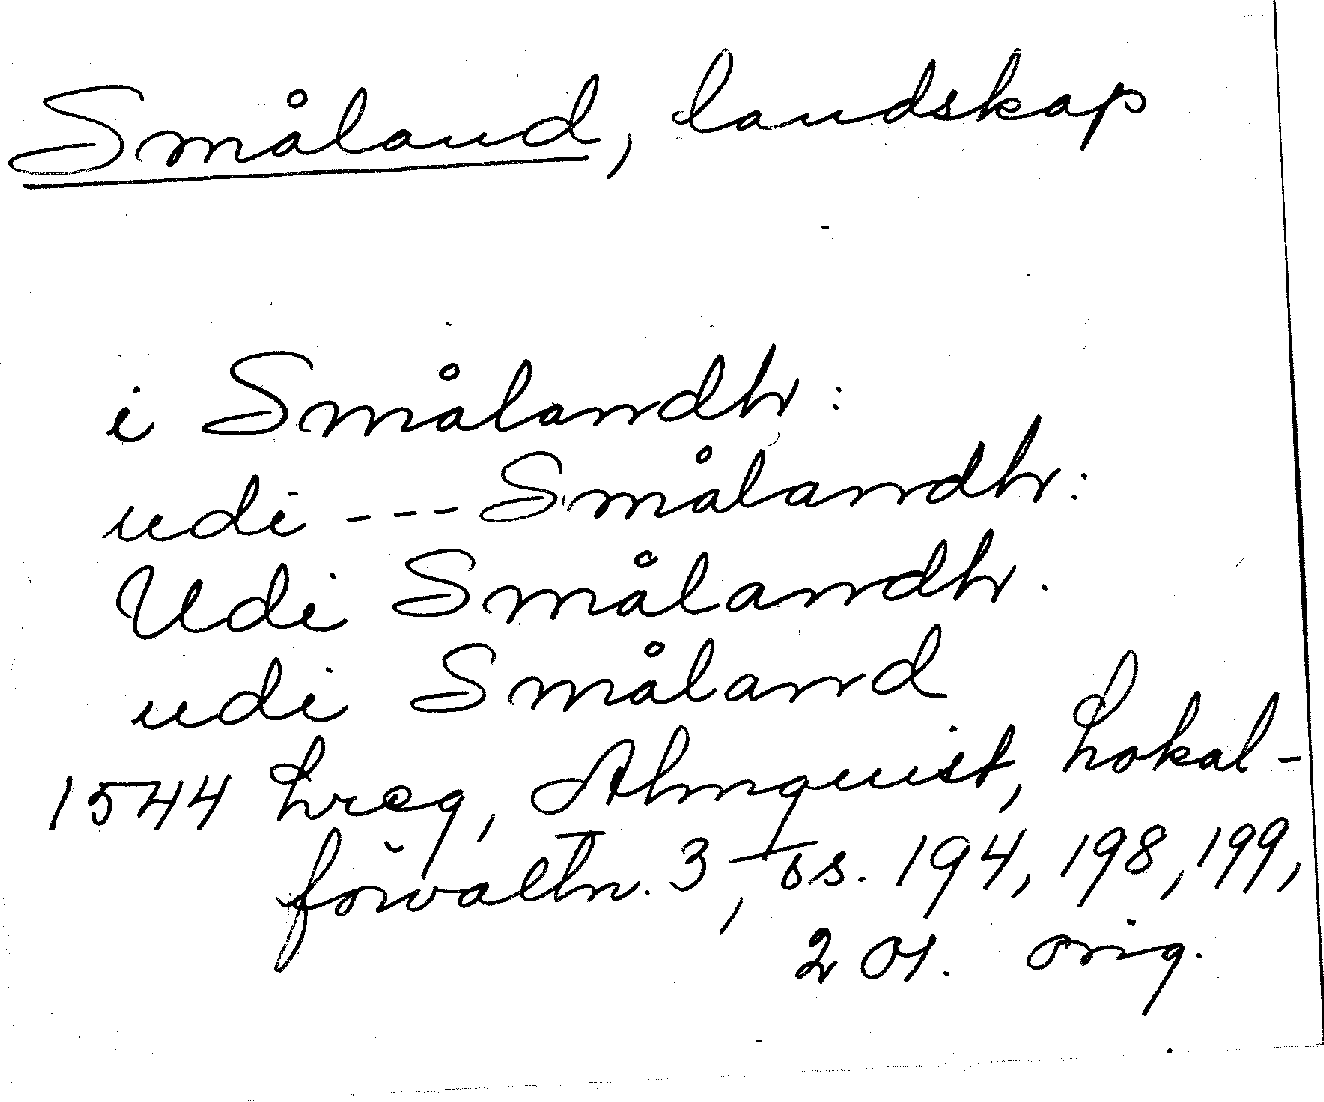 Småland, landskap
i Smålandh:
udi --- Smålandh:
Udi Smålandh.
udi Småland
1544 Lreg, Almquist, Lokal-
förvaltn. 3, ss. 194, 198, 199,
201. orig.